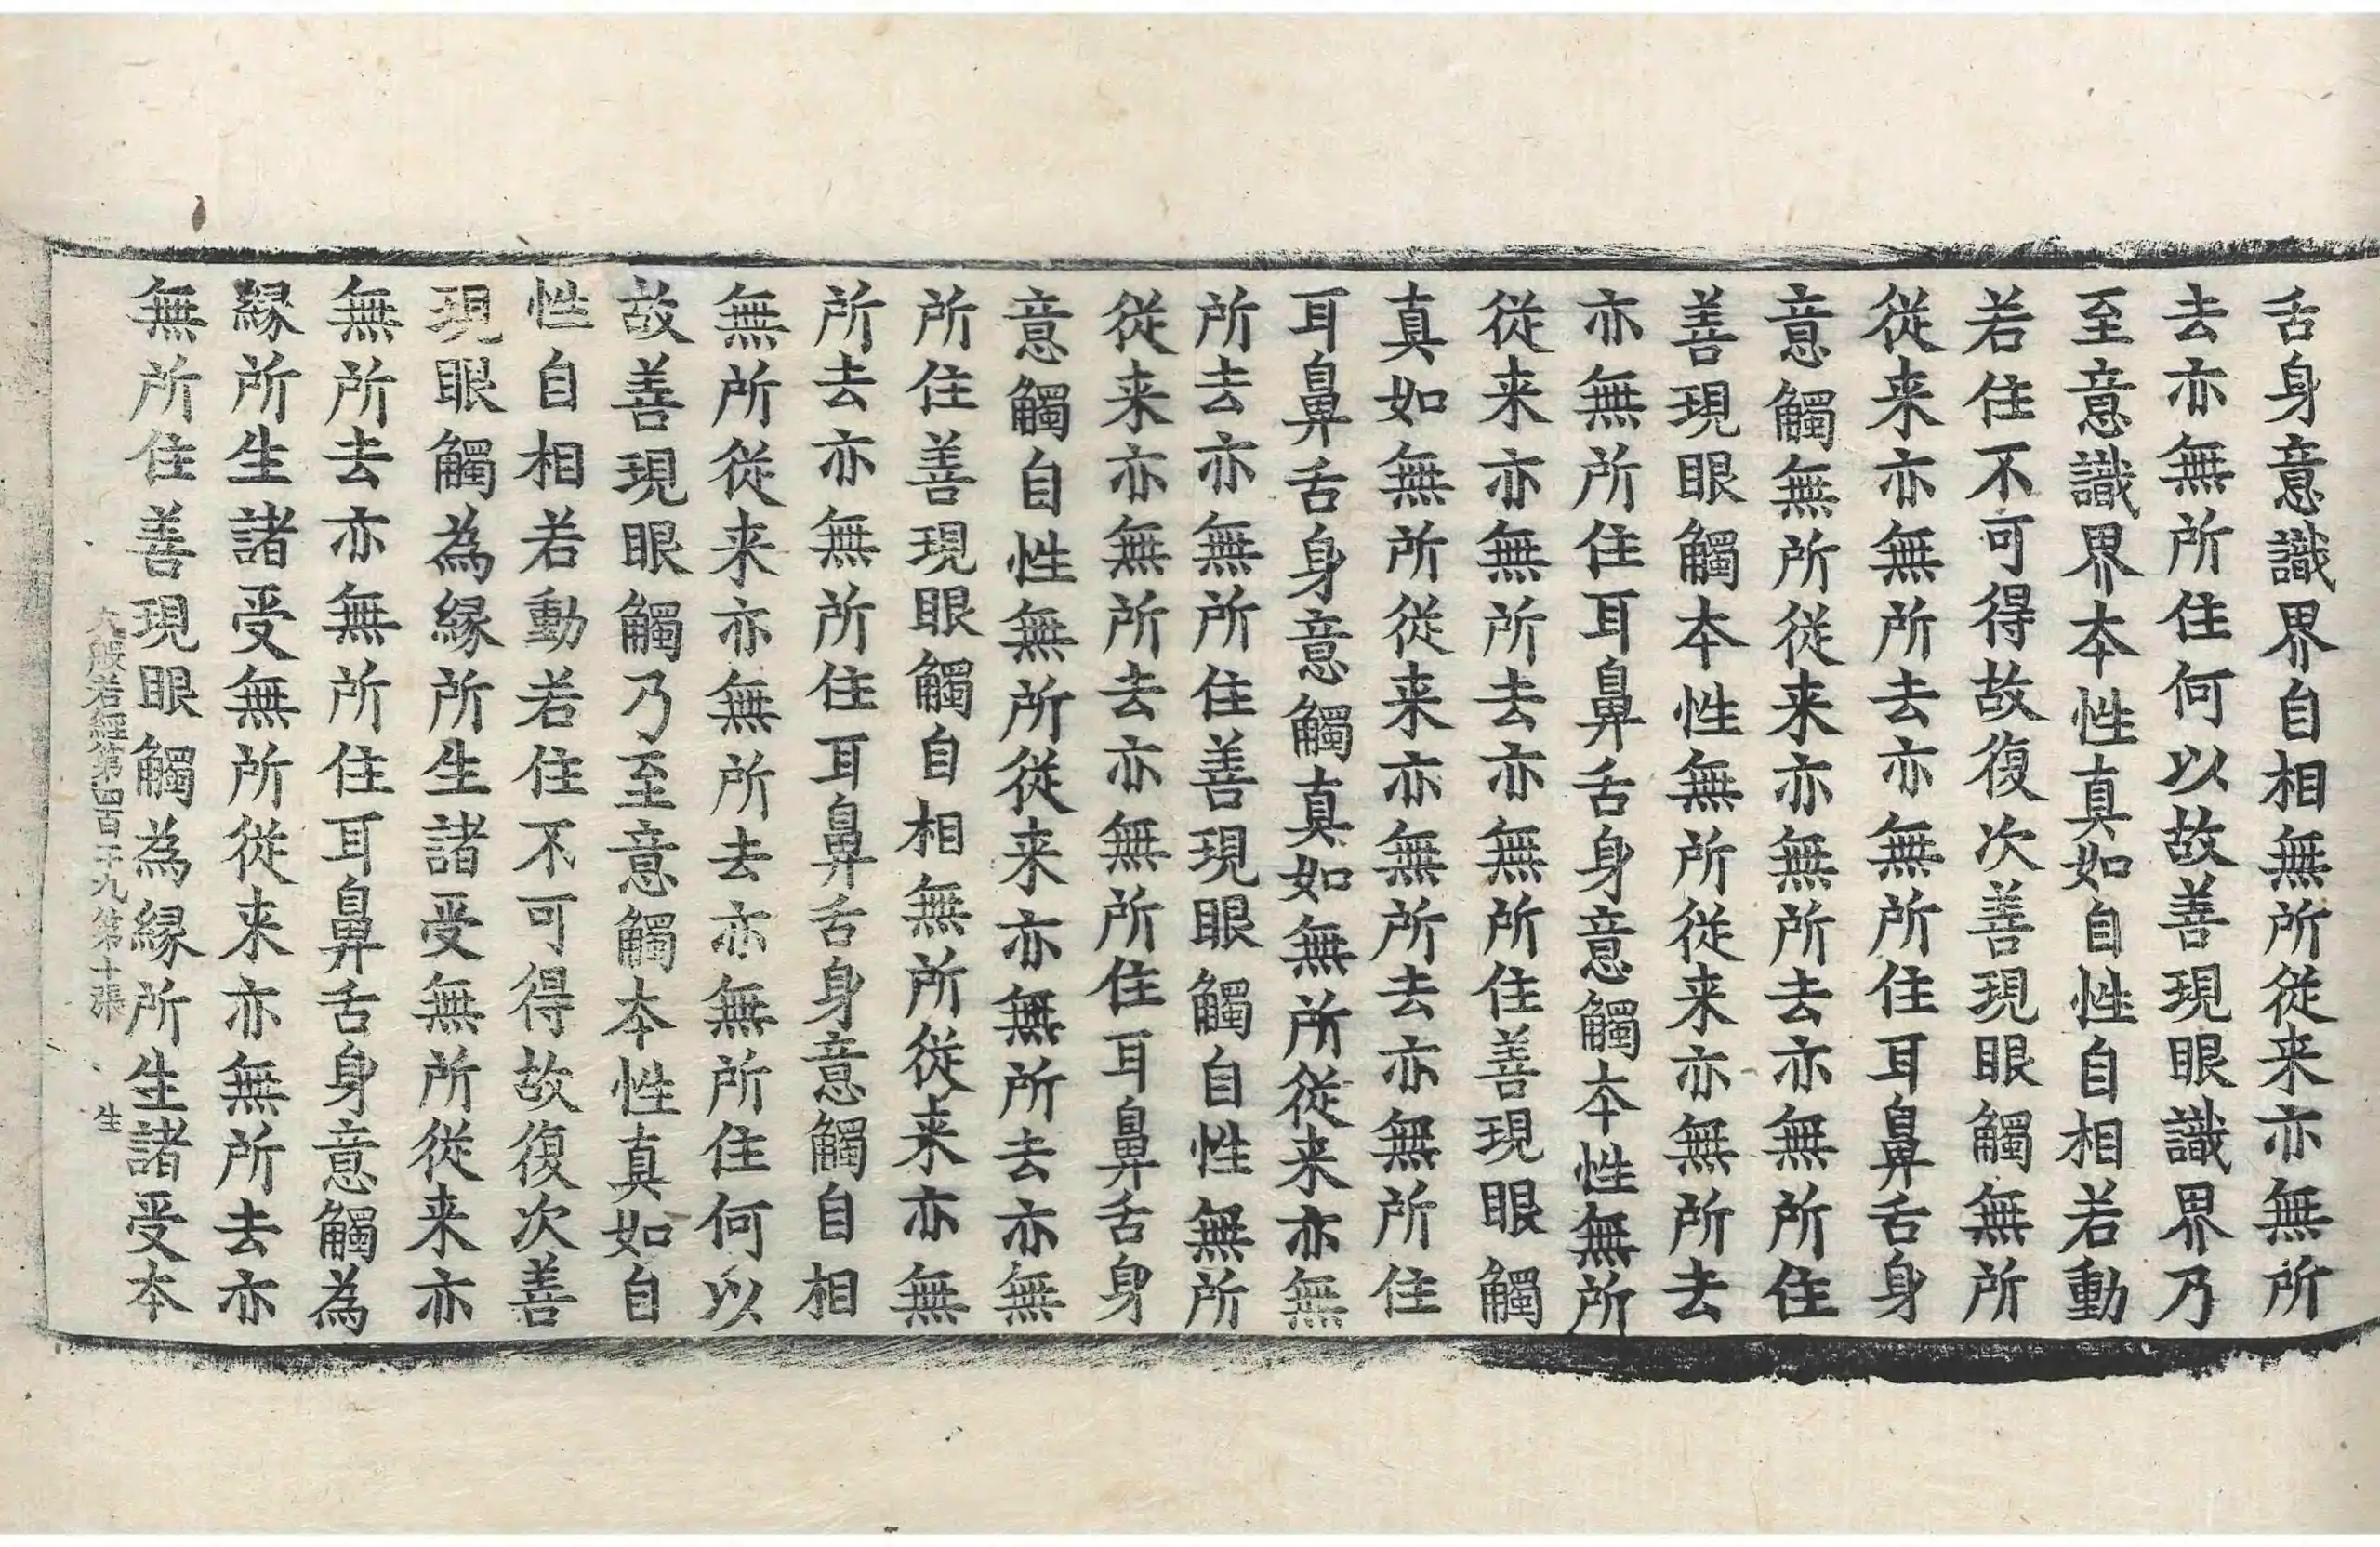 舌身意識界自相無所從来亦無所
去亦無所住何以故善現眼識界乃
至意識界本性真如自性自相若動
若住不可得故復次善現眼觸無所
從来亦無所去亦無所住耳鼻舌身
意觸無所從来亦無所去亦無所住
善現眼觸本性無所從来亦無所去
亦無所住耳鼻舌身意觸本性無所
從来亦無所去亦無所住善現眼觸
真如無所從来亦無所去亦無所住
耳鼻舌身意觸真如無所從来亦無
所去亦無所住善現眼觸自性無所
從来亦無所去亦無所住耳鼻舌身
意觸自性無所從来亦無所去亦無
所住善現眼觸自相無所從来亦無
所去亦無所住耳鼻舌身意觸自相
無所從来亦無所去亦無所住何以
故善現眼觸乃至意觸本性真如自
性自相若動若住不可得故復次善
現眼觸為緣所生諸受無所從来亦
無所去亦無所住耳鼻舌身意觸為
緣所生諸受無所從来亦無所去亦
無所住善現眼觸為緣所生諸受本
大般若經第四百十九第十張 生